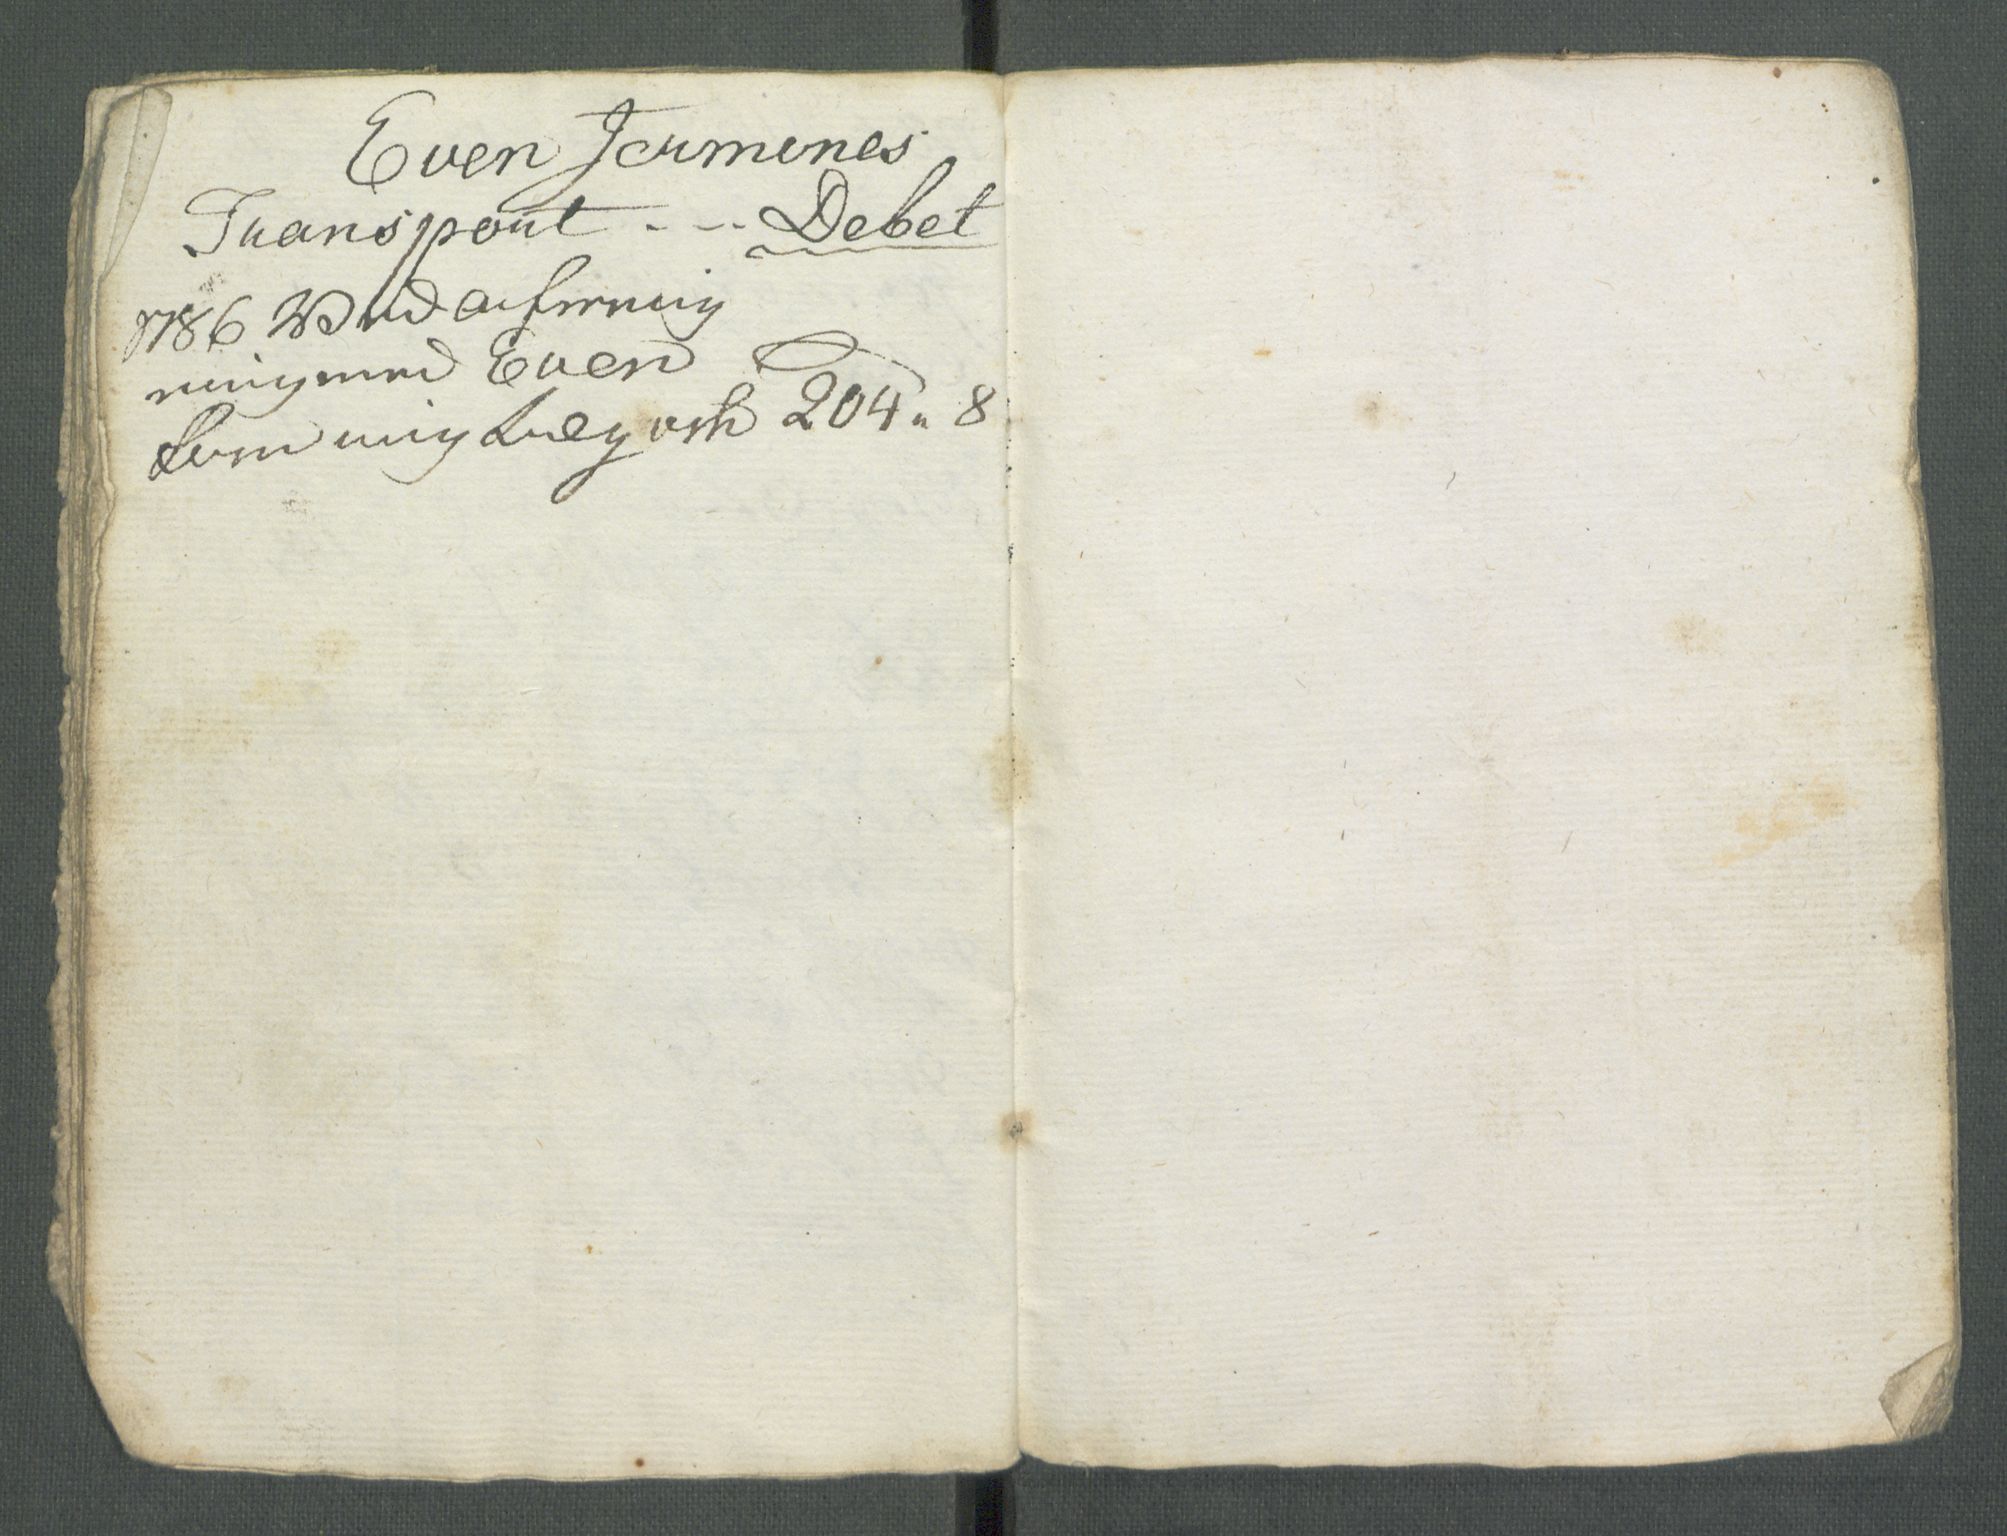 Even Jermenes
Transport - - - Debet
1786 Ved afregning
ning med Even
204 " 8